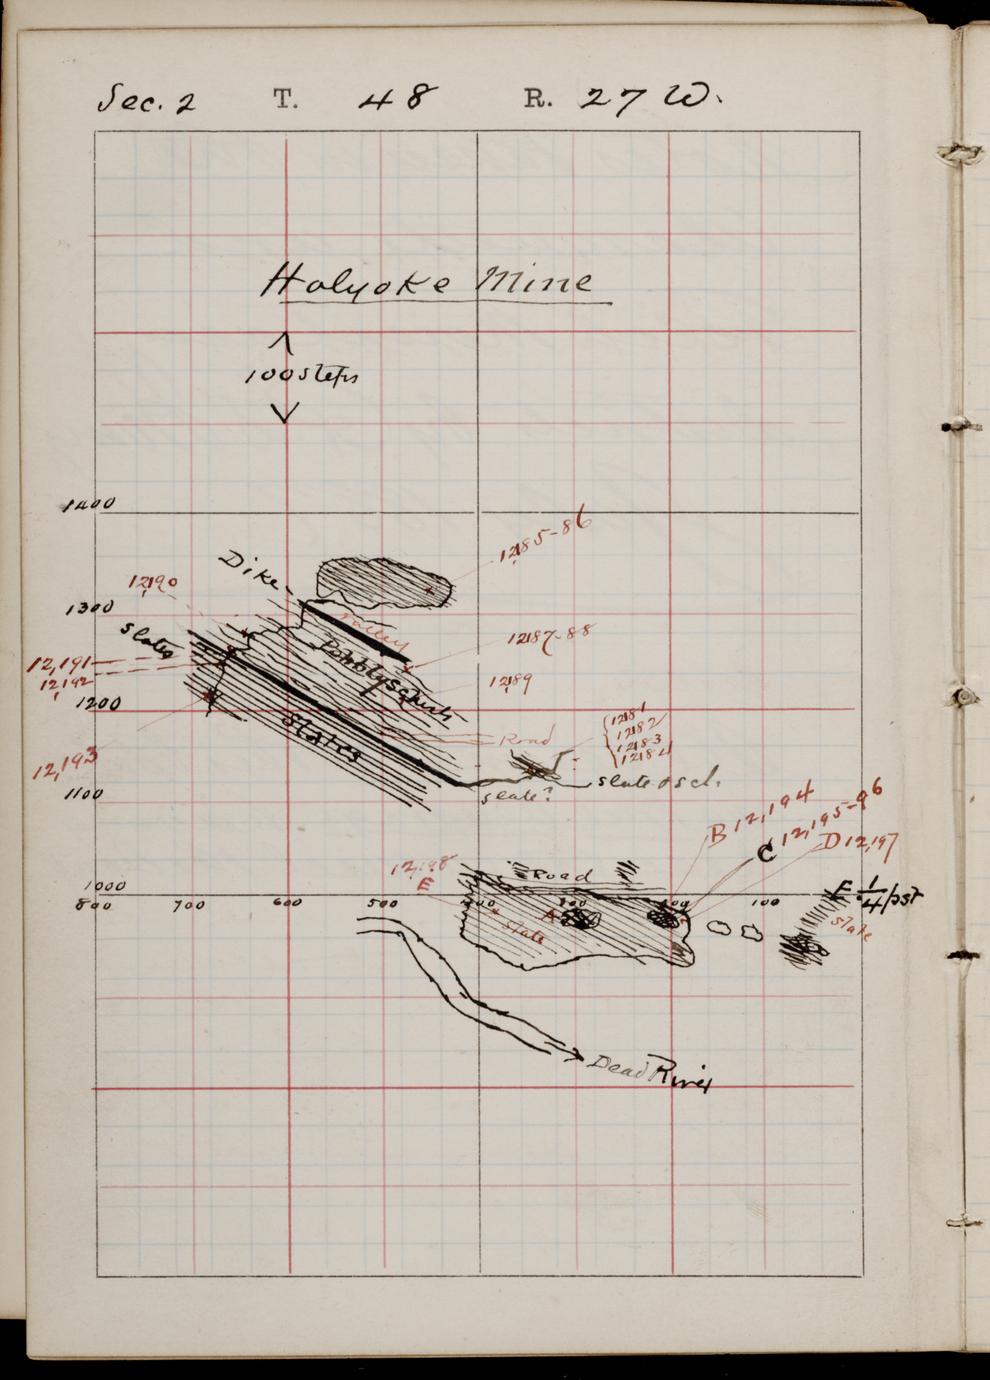 Sec. 2 T. 48 R. 27 W.
Holyoke Mine
100 steps
1400
12,185-86
Dike
12,190
1300
valley
slates
Pebbly schists
12,187-88
12,191
12,192
12,189
1200
Slates
Road
12,181
12,182
12,183
12,184
12,193
slate & sch.
1100
slate?
B 12,194
C 12,195-96
D 12,197
12,198
E
Road
1000
E 1/4 pst
800 700 600 500 400 300 200 100
A
slate
slate
Dead River